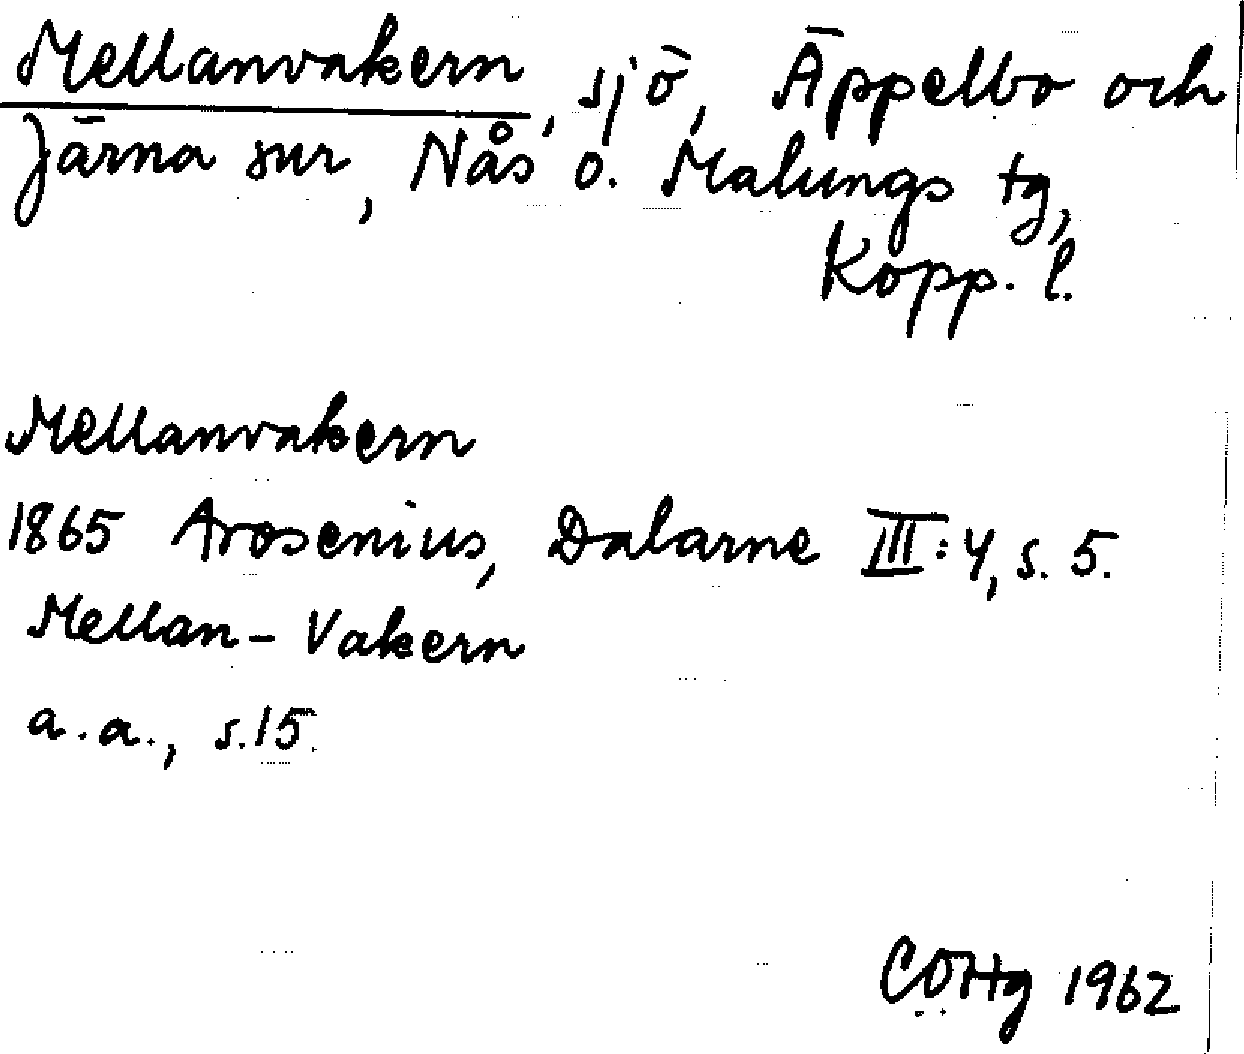 Mellanvakern, sjö, Äppelbo och
Järna snr, Nås o. Malungs tg,
Kopp. l.
Mellanvakern
1865 Arosenius, Dalarne III:4, s. 5.
Mellan-Vakern
a.a., s.15.
COHg 1962